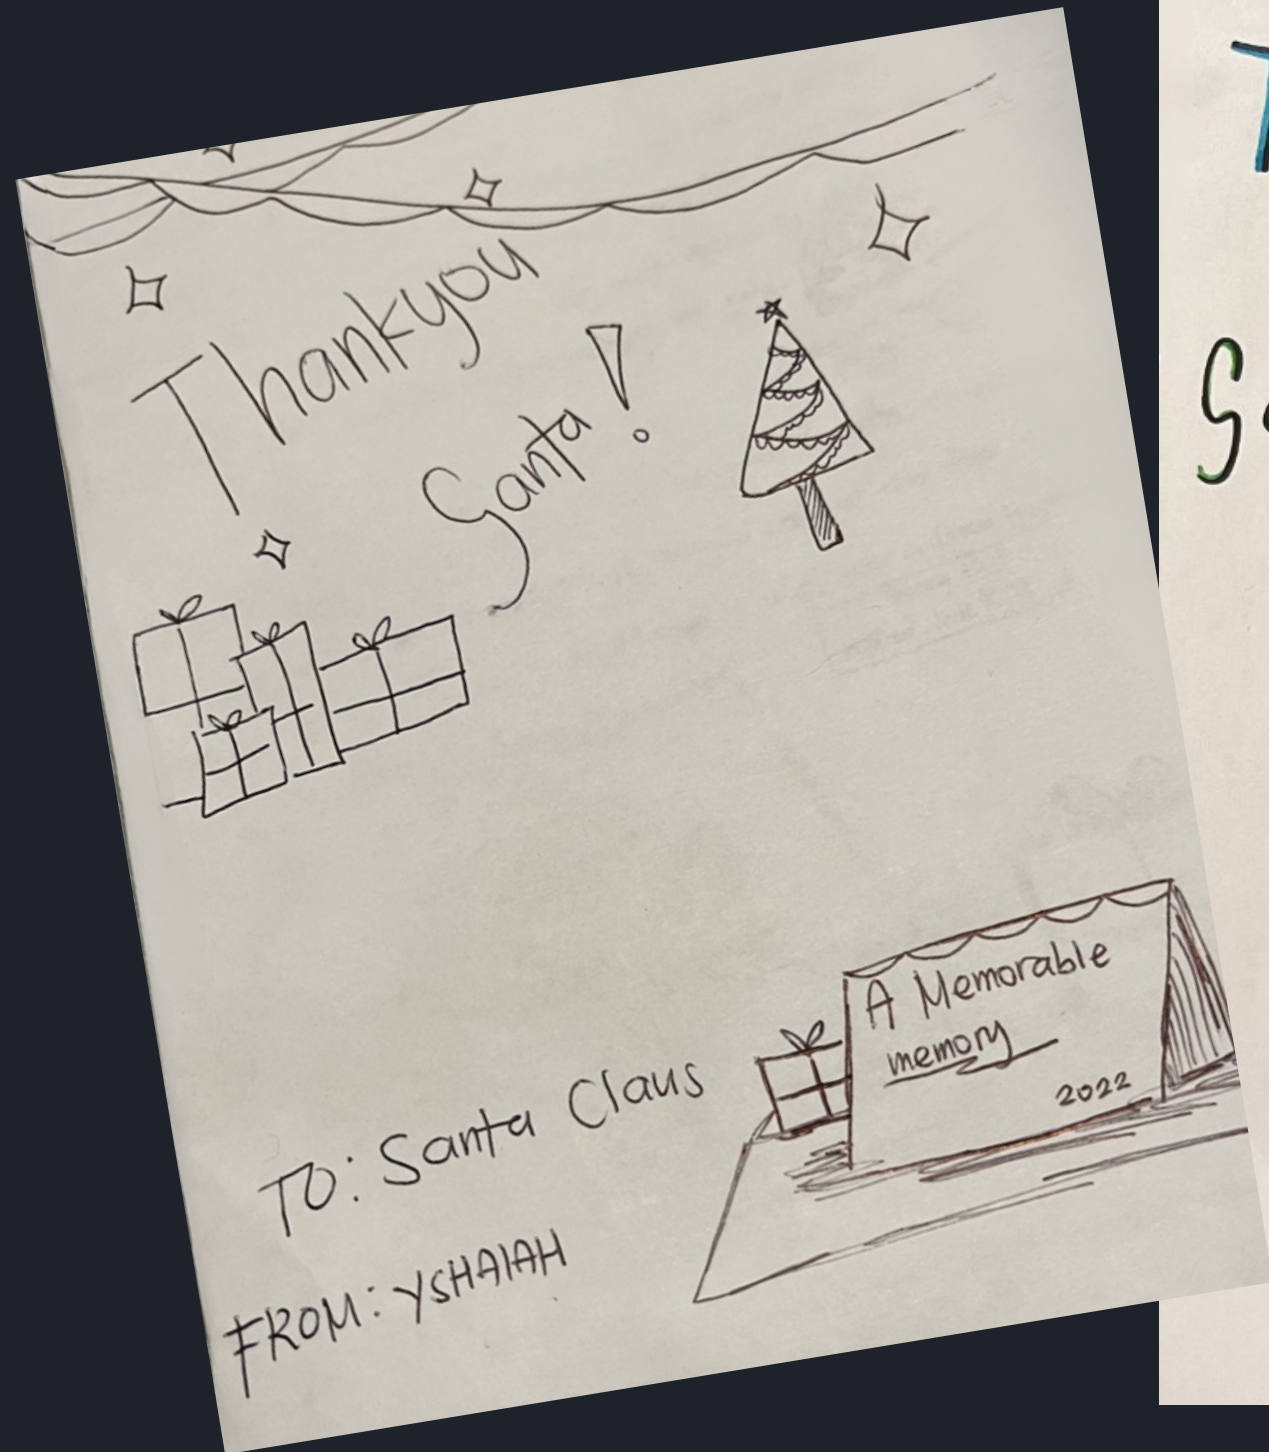 Thankyou
Santa!
A Memorable
memory
2022
TO: Santa Claus
FROM: YSHAIAH